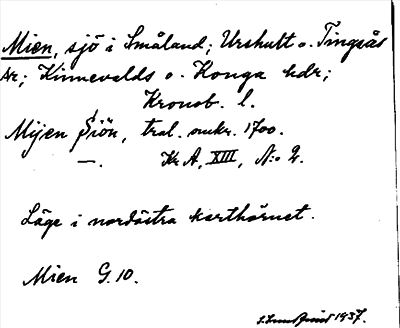 Mien, sjö i Småland; Urshult o. Tingsås
snr; Kinnevalds o. Konga hdr;
Kronob. l.
Mijen Siön, tral. omkr. 1700.
—. Kr A, XIII, N:o 2.
Läge i nordöstra karthörnet.
Mien G. 10.
1937.